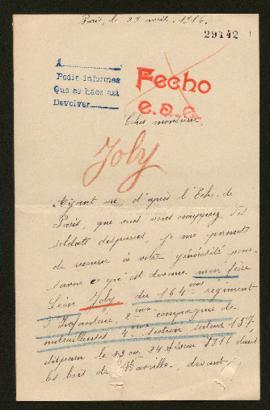 Paris, le 29 avril. 1916.
29142
A
Pedir informes
Que se hace así
Devolver
Fecho
e.a.c.
Cher monsieur,
Joly
Ayant vu, d'après l'Echo de
Paris, que vous vous occupez des
soldats disparus, je me permets
de recourir à votre générosité pour
savoir ce qu'est devenu mon frère
Léon Joly du 164ème régiment
d'Infanterie, 2ème compagnie de
mitrailleuses, secteur 157,
disparu le 23 ou 24 février 1916 dans
le bois de Wavrille, devant